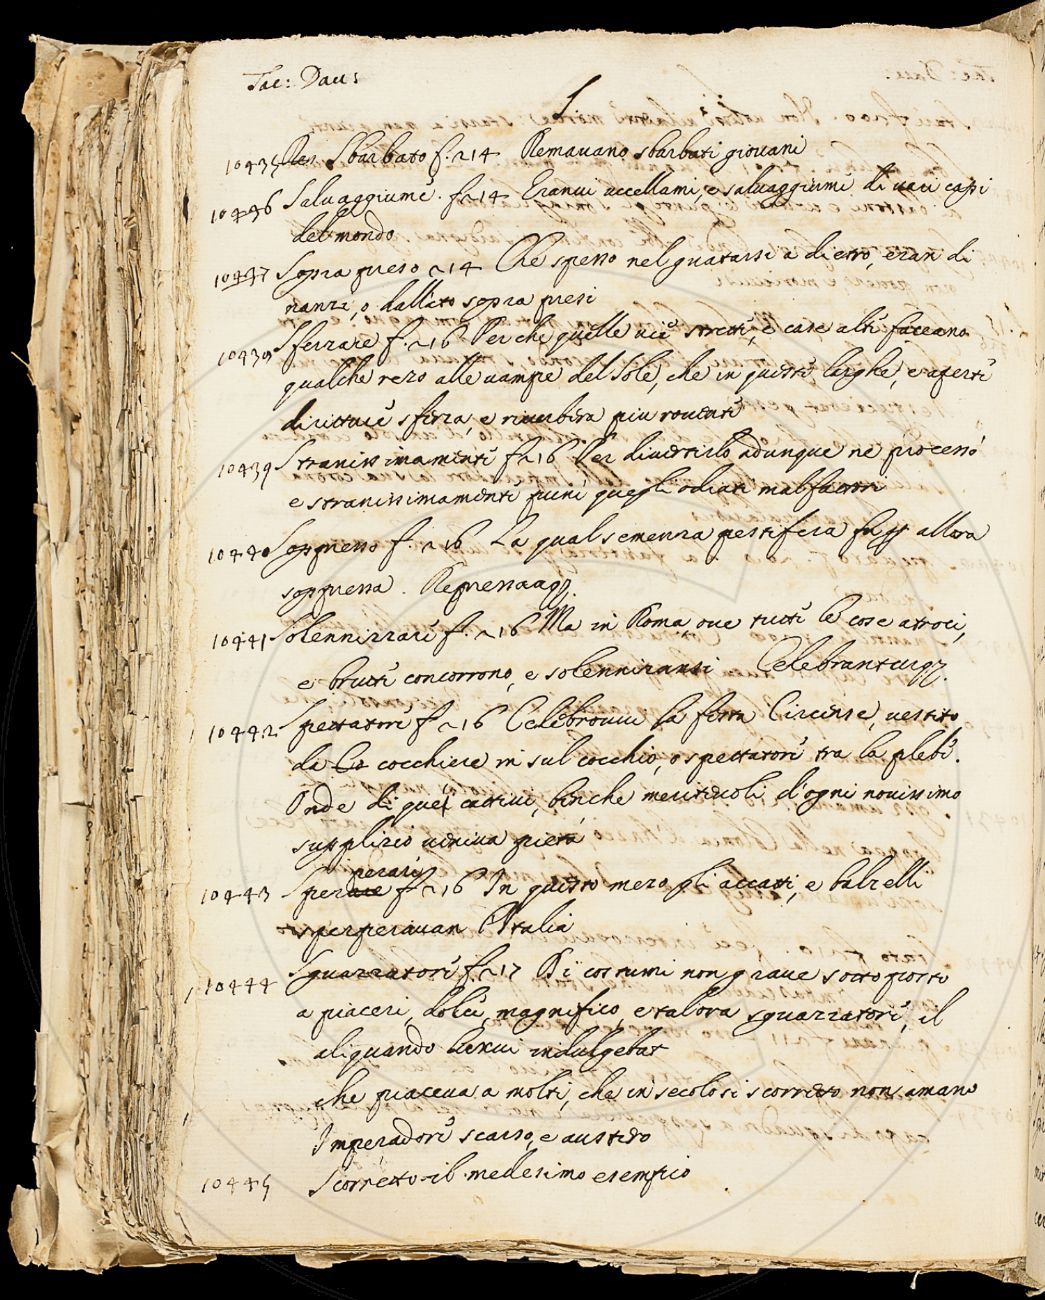 Tac: Dav:
S
10435 Sbarbato f. 214 Remavano sbarbati giovani
10436 Salvaggiume. f. 214 Eranvi uccellami, e salvaggiumi di varj casi
del mondo
10437 Sopra preso 214 Che spesso nel guatarsi a dietro, eran di
nanzi, o dallato sopra presi
10439 Sferzare f. 216 Perche quelle vie strette, e case alte faceano
qualche rezo alle vampe del Sole, che in queste larghe, e aperte
diritture sferza, e riverbera piu rovente
10439 Stranissimamente f. 216 Per divertirlo adunque ne processò
e stranissimamente punì quegli odiati malfattori
10440 Soppresso f. 216 La qual semenza pestifera fu allora
soppressa. Repressaq3.
10441 Solennizzare f. 216 Ma in Roma, ove tutte le cose atroci,
e brutte concorrono, e solennizansi Celebranturq3.
10442 Spettatore f. 216 Celebrovvi la festa Circense, vestito
da cocchiere in sul cocchio, o spettatore tra la plebe.
Onde di quei cattivi, benche meritevoli d'ogni novissimo
supplizio veniva pietà
10443 Sperperare f. 216 In questo mezo gli accatti, e balzelli
sperperavan l'Italia
10444 Sguazzatore f. 217 Di costumi non grave sottoposto
a piaceri, dolce, magnifico, e talora sguazzatore, il
aliquando luxui indulgebat
che piaceva a molti, che in secolo si scorretto non amano
Imperadore scarso, e austero
10445 Scorretto il medesimo esempio